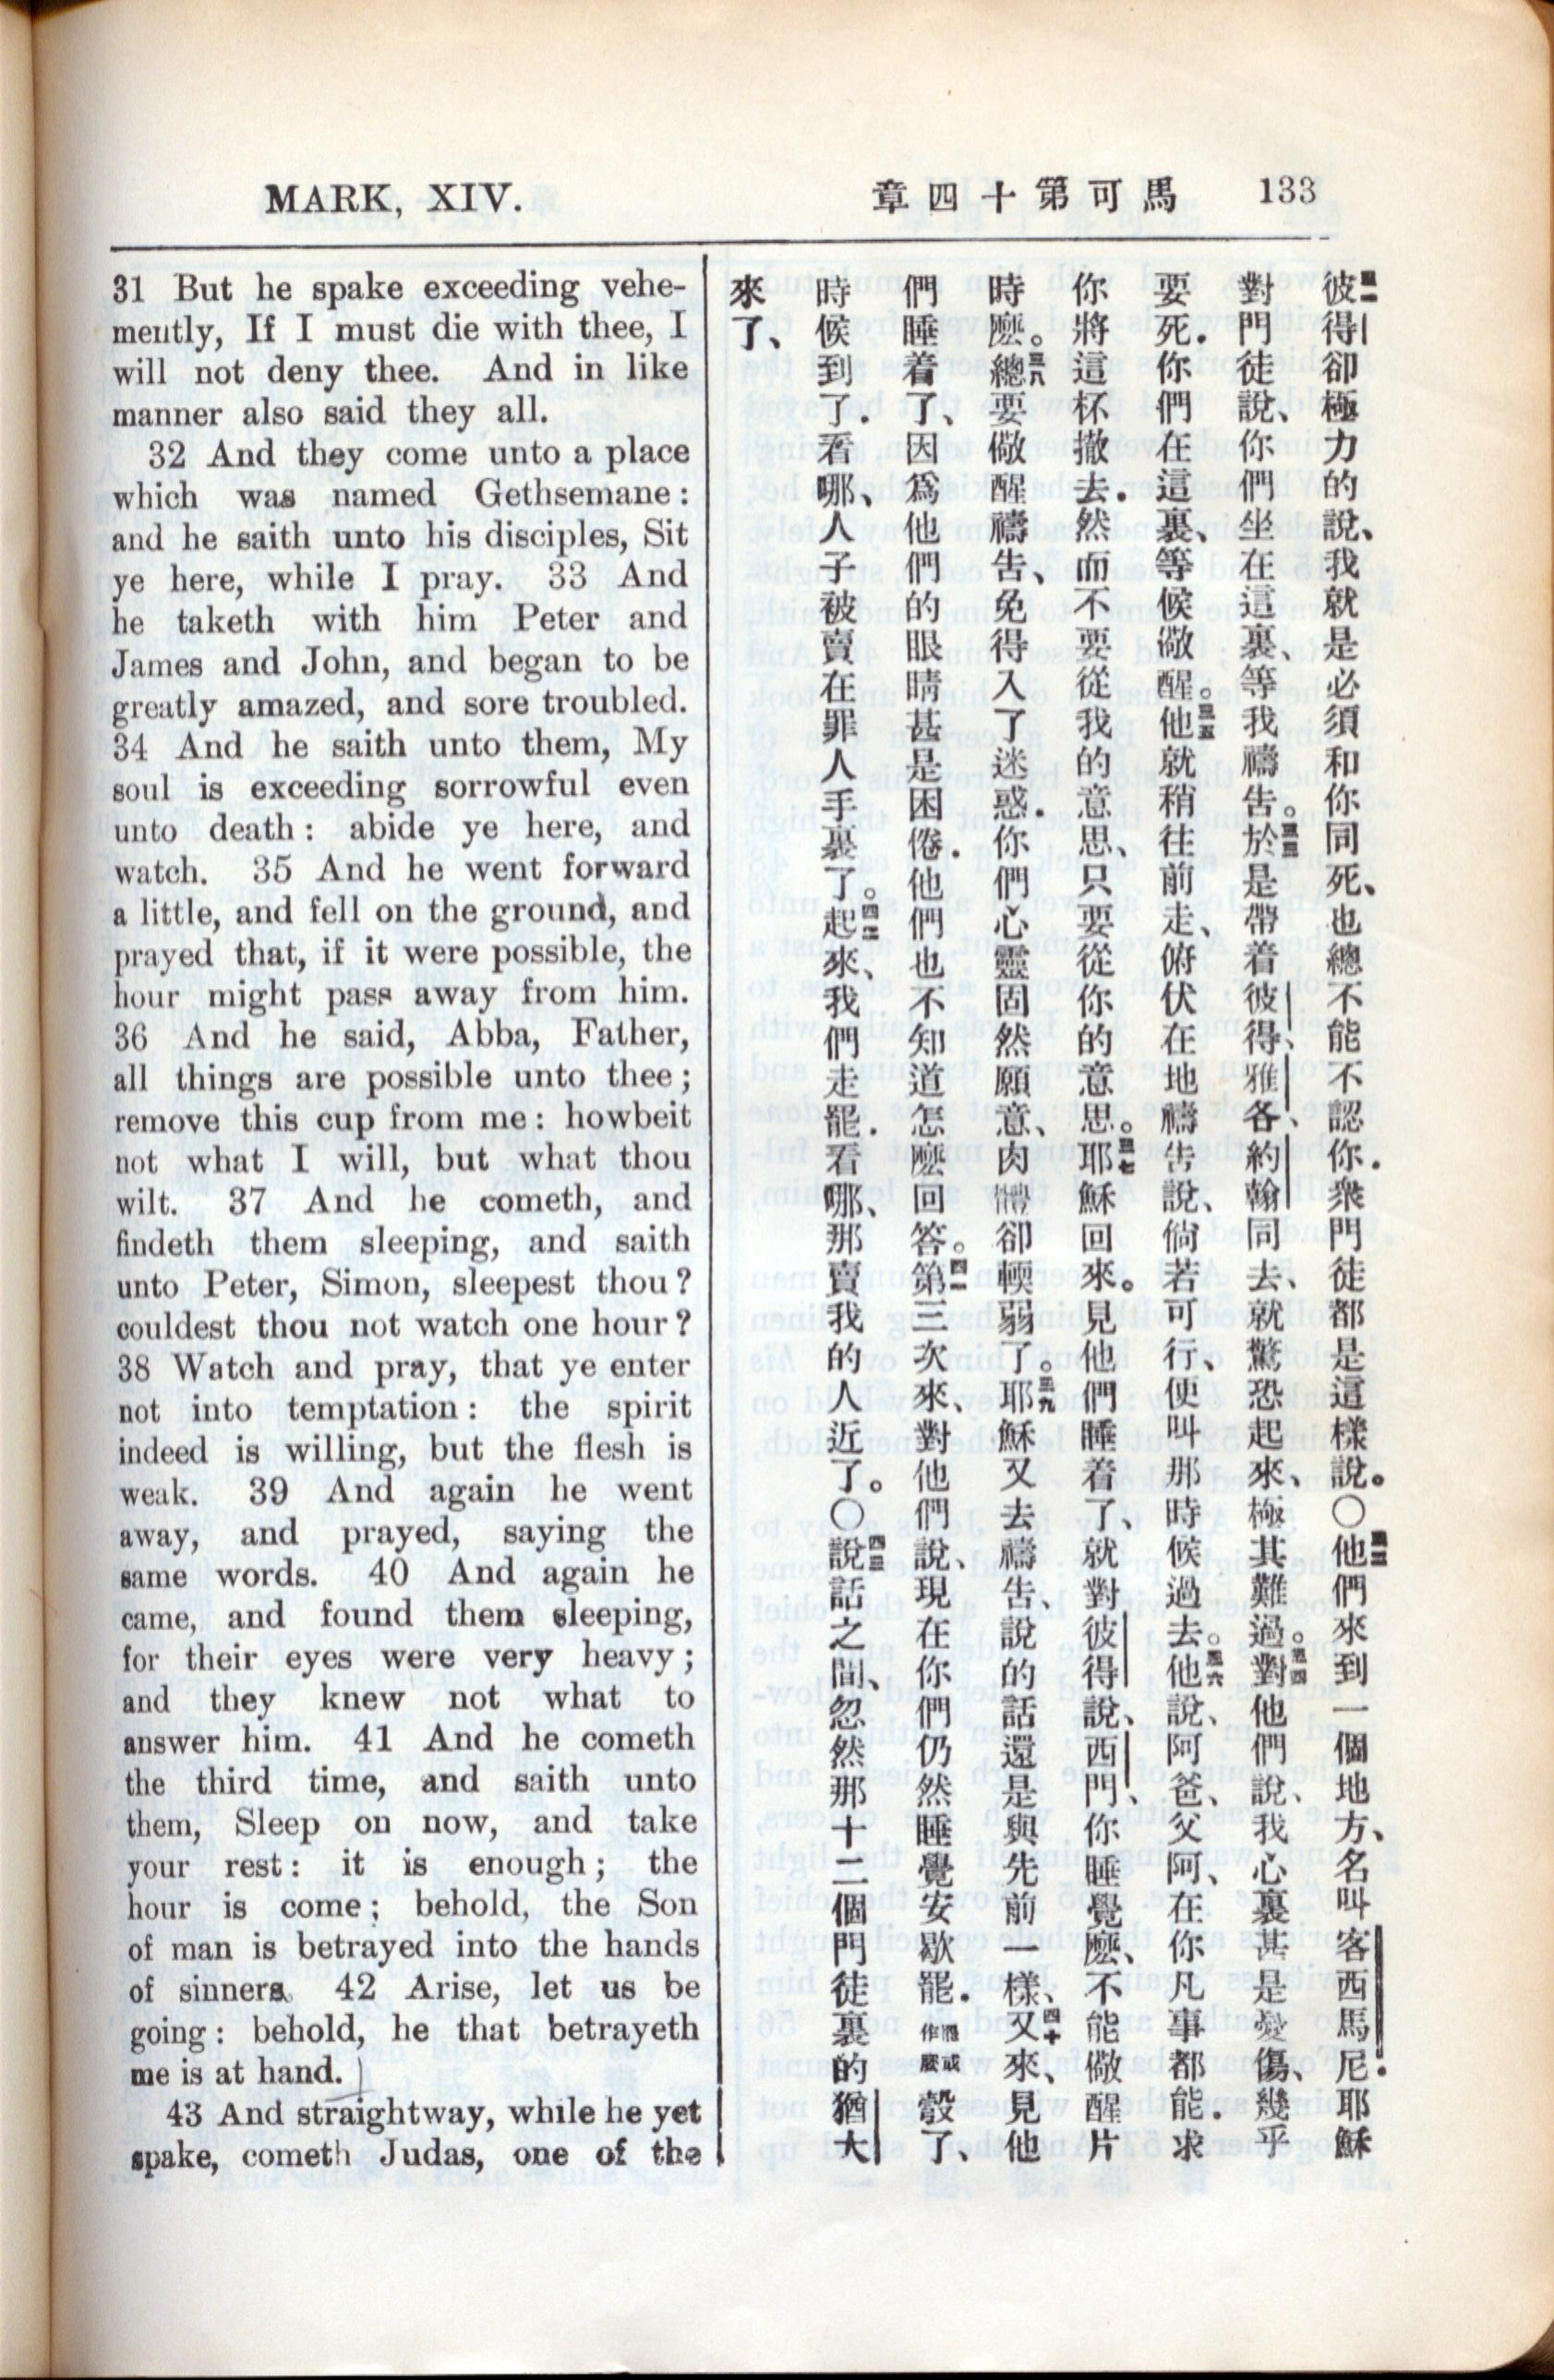 MARK, XIV.
章四十第可馬 133
31 But he spake exceeding vehe-
mently, If I must die with thee, I
will not deny thee. And in like
manner also said they all.
32 And they come unto a place
which was named Gethsemane:
and he saith unto his disciples, Sit
ye here, while I pray. 33 And
he taketh with him Peter and
James and John, and began to be
greatly amazed, and sore troubled.
34 And he saith unto them, My
soul is exceeding sorrowful even
unto death: abide ye here, and
watch. 35 And he went forward
a little, and fell on the ground, and
prayed that, if it were possible, the
hour might pass away from him.
36 And he said, Abba, Father,
all things are possible unto thee;
remove this cup from me: howbeit
not what I will, but what thou
wilt. 37 And he cometh, and
findeth them sleeping, and saith
unto Peter, Simon, sleepest thou?
couldest thou not watch one hour?
38 Watch and pray, that ye enter
not into temptation: the spirit
indeed is willing, but the flesh is
weak. 39 And again he went
away, and prayed, saying the
same words. 40 And again he
came, and found them sleeping,
for their eyes were very heavy;
and they knew not what to
answer him. 41 And he cometh
the third time, and saith unto
them, Sleep on now, and take
your rest: it is enough; the
hour is come; behold, the Son
of man is betrayed into the hands
of sinners. 42 Arise, let us be
going: behold, he that betrayeth
me is at hand.
43 And straightway, while he yet
spake, cometh Judas, one of the
三一彼得卻極力的說、我就是必須和你同死、也總不能不認你．衆門徒都是這樣說。○三二他們來到一個地方、名叫客西馬尼．耶穌
對門徒說、你們坐在這裏、等我禱告。三三於是帶着彼得、雅各、約翰同去、就驚恐起來、極其難過。三四對他們說、我心裏甚是憂傷、幾乎
要死．你們在這裏、等候儆醒。三五他就稍往前走、俯伏在地禱告說、倘若可行、便叫那時候過去。三六他說、阿爸、父阿、在你凡事都能．求
你將這杯撤去．然而不要從我的意思、只要從你的意思。三七耶穌回來。見他們睡着了、就對彼得說、西門、你睡覺麼、不能儆醒片
時麼。三八總要儆醒禱告、免得入了迷惑．你們心靈固然願意、肉體卻輭弱了。三九耶穌又去禱告、說的話還是與先前一樣、四十又來、見他
們睡着了、因爲他們的眼睛甚是困倦．他們也不知道怎麼回答。四一第三次來、對他們說、現在你們仍然睡覺安歇罷．罷或作麼彀了、
時候到了．看哪、人子被賣在罪人手裏了。四二起來、我們走罷．看哪、那賣我的人近了。○四三說話之間、忽然那十二個門徒裏的猶大
來了、